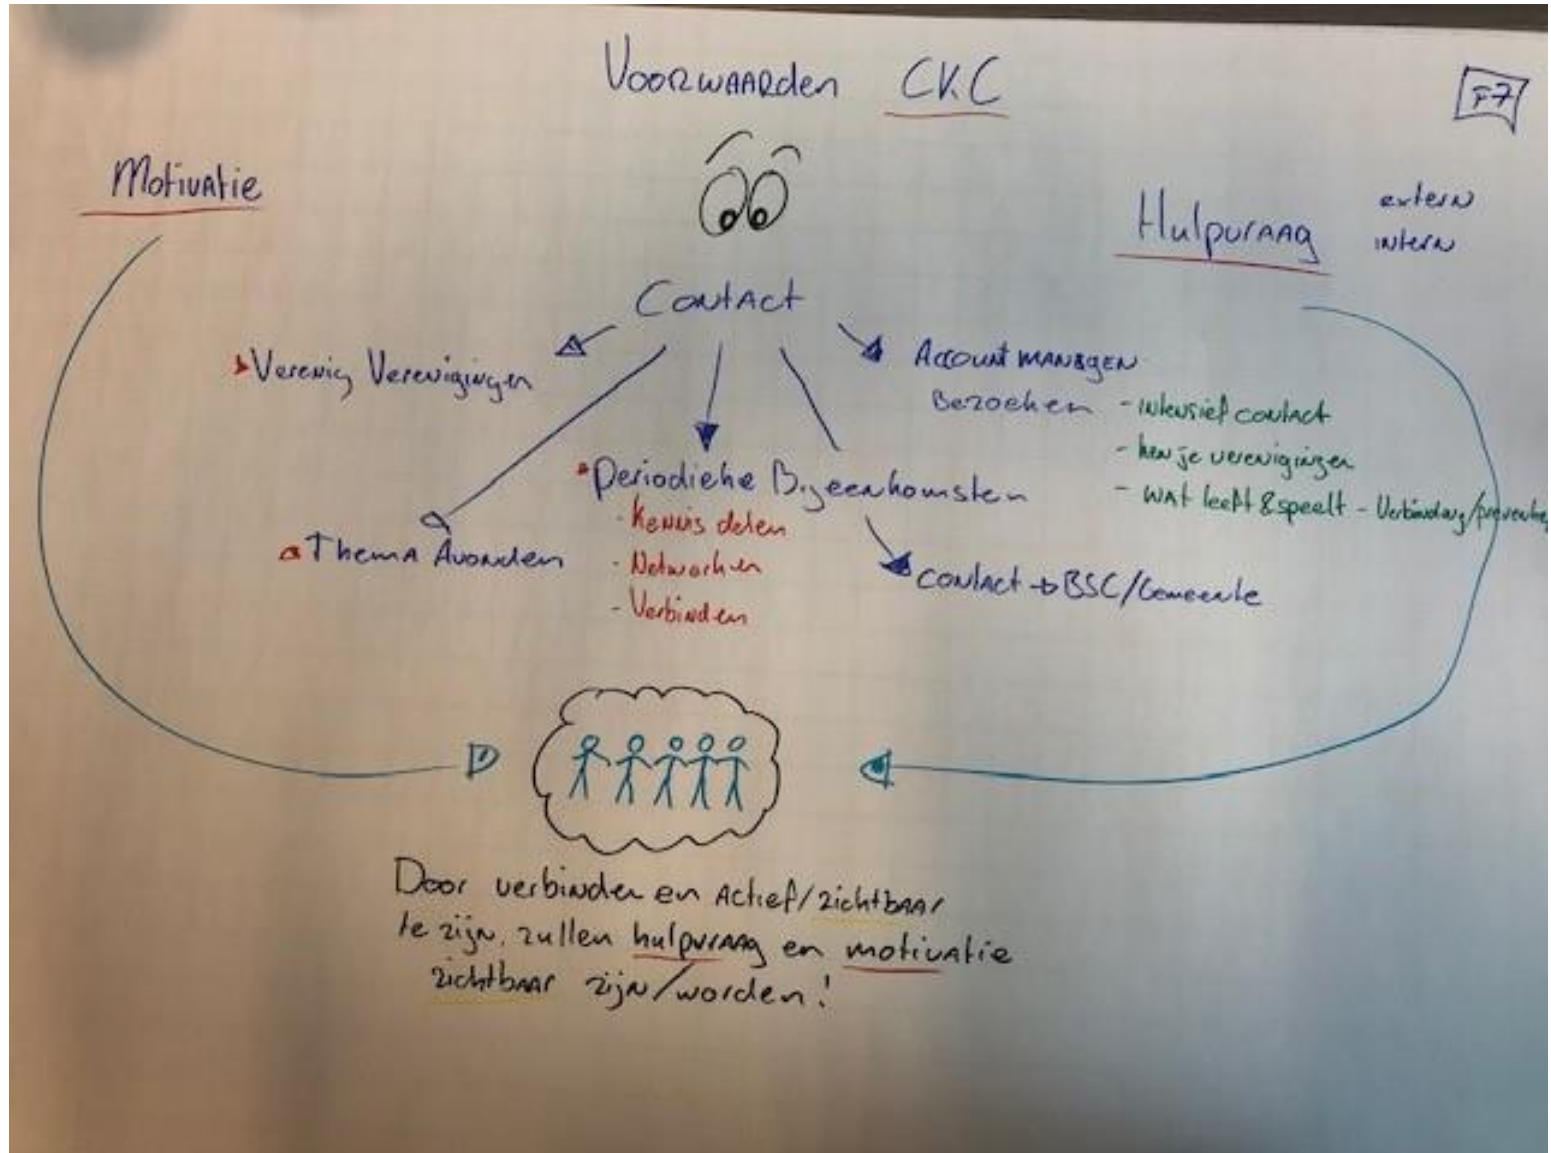 Voorwaarden CKC
F7
Motivatie
Hulpvraag
extern
intern
Contact
Verenig Verenigingen
Accountmanagen
Bezoeken
- intensief contact
- ken je verenigingen
- wat leeft & speelt - Verbinding/preventie
Periodieke Bijeenkomsten
- Kennis delen
- Netwerken
- Verbinden
Thema Avonden
Contact → BSC/Gemeente
Door verbinden en Actief/zichtbaar
te zijn, zullen hulpvraag en motivatie
zichtbaar zijn/worden!